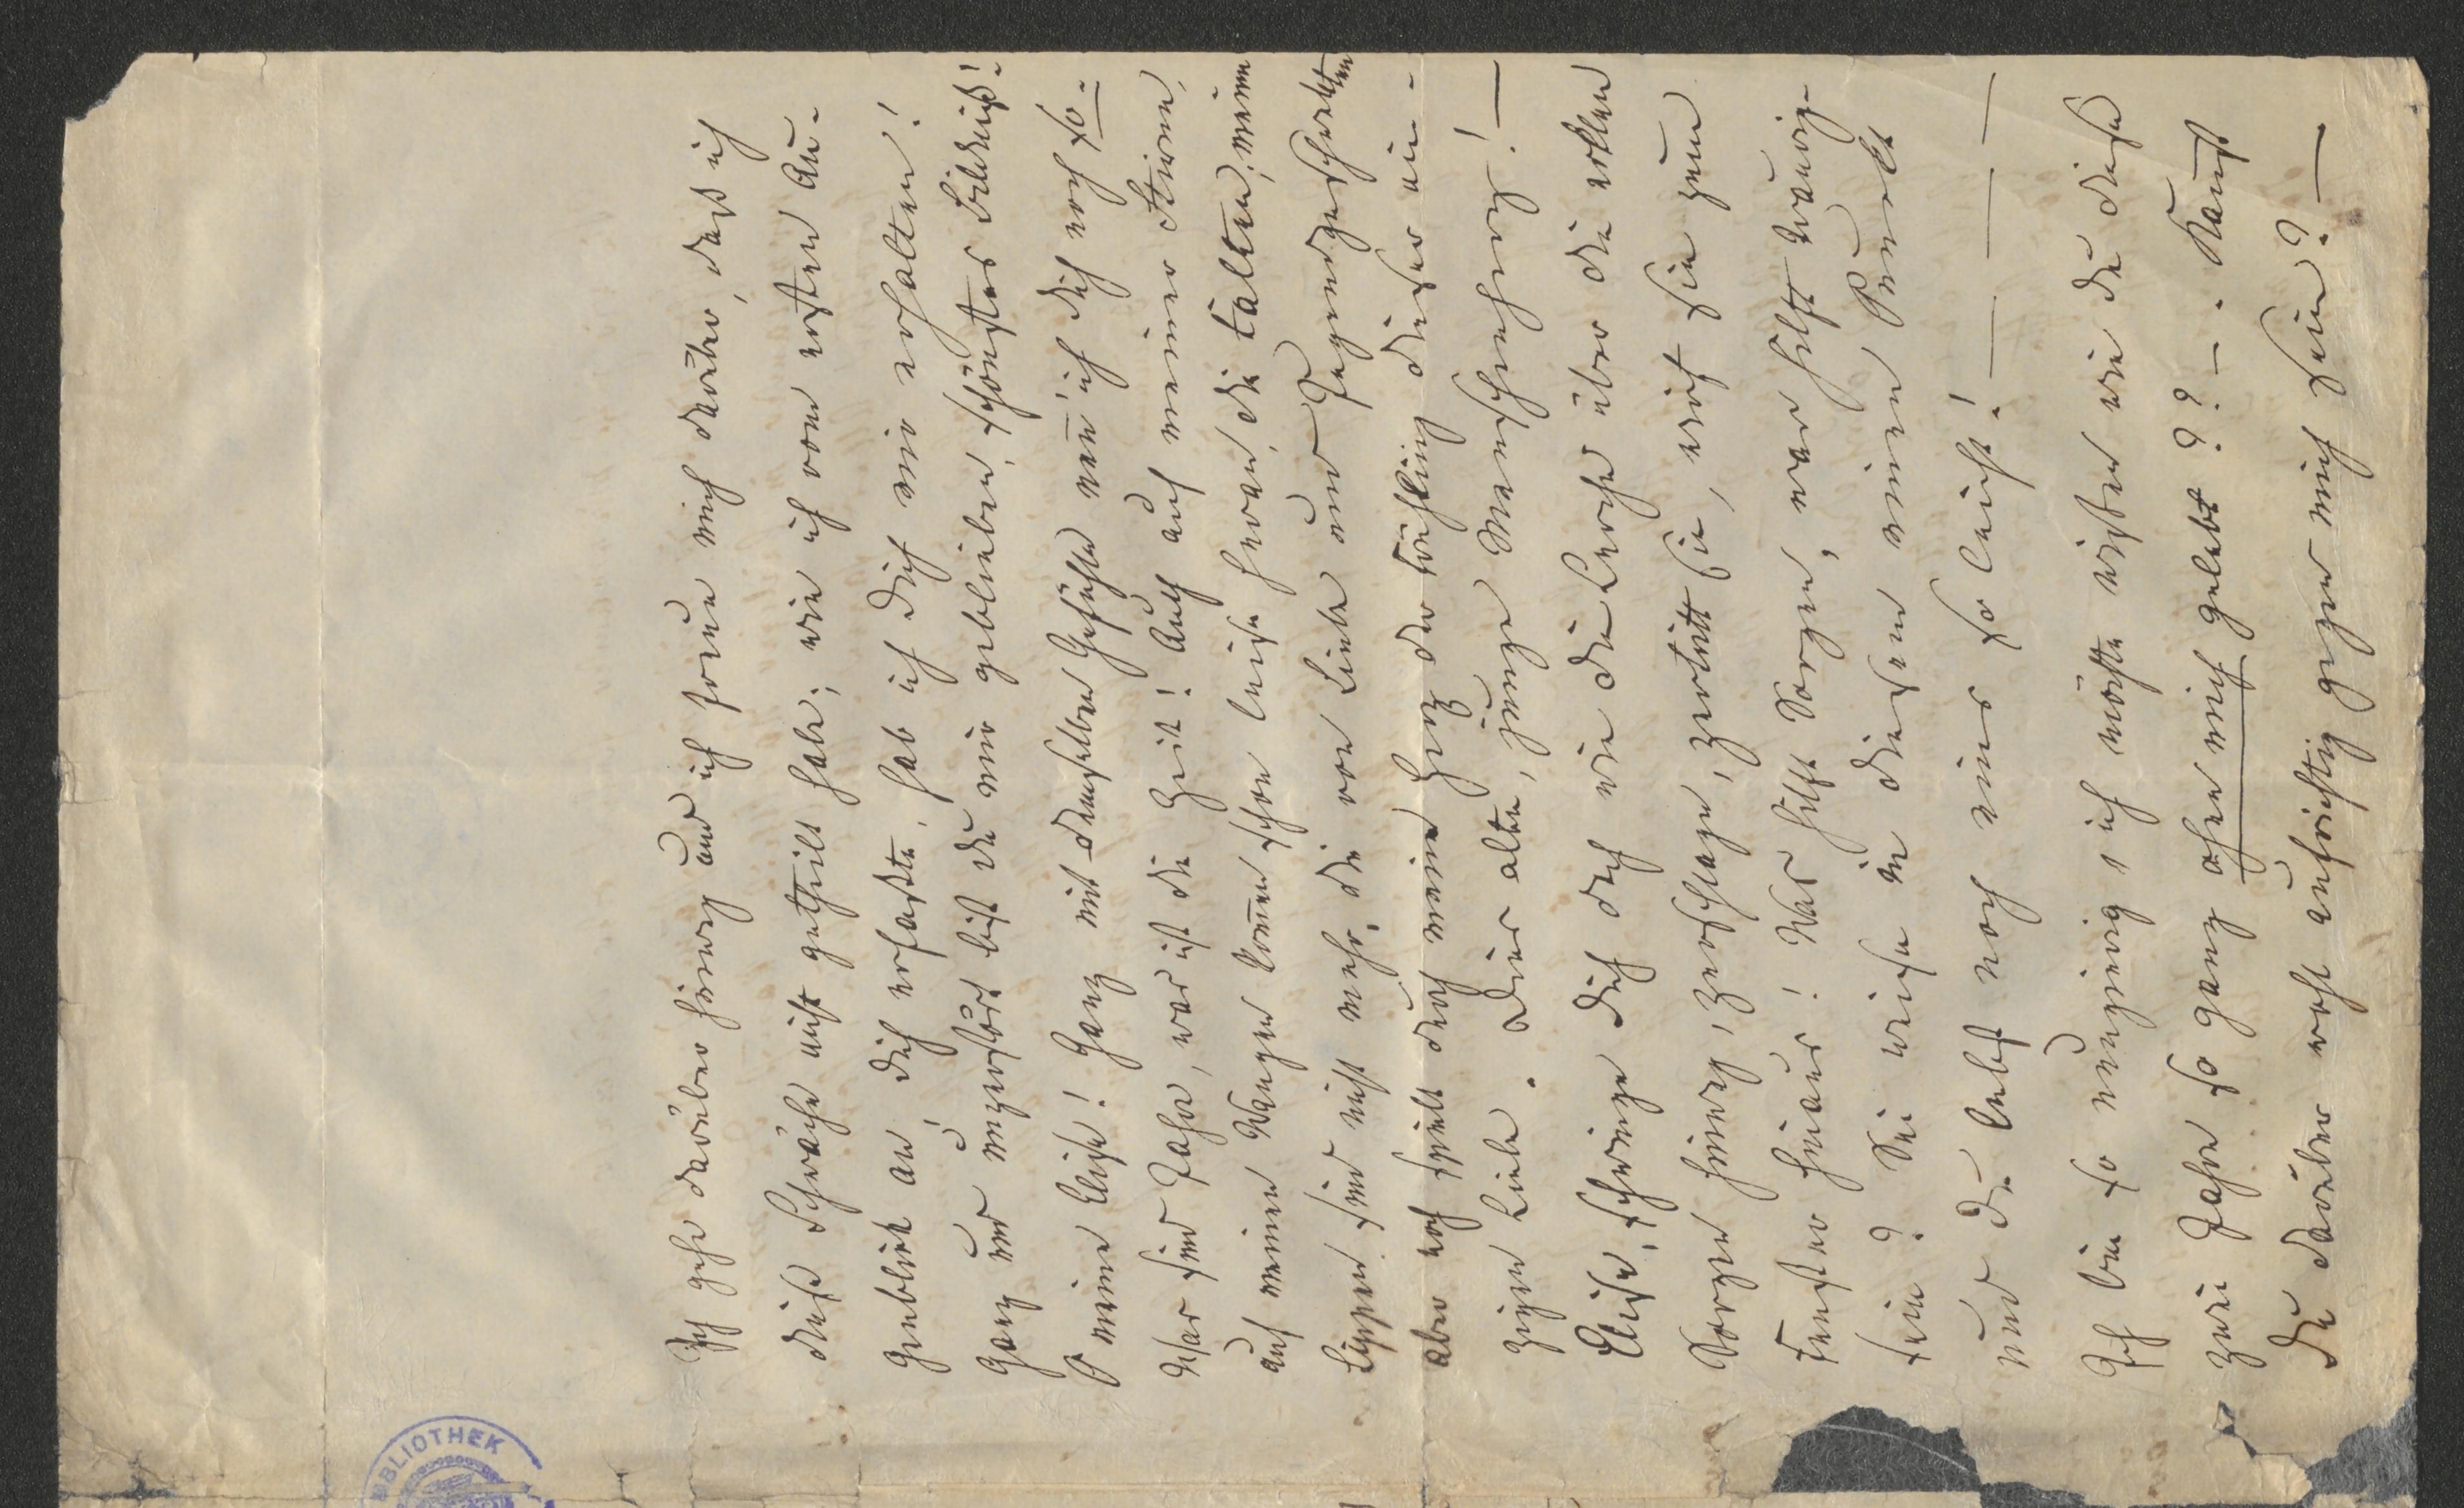 Ich gehe darüber hinweg und ich freue mich darüber, daß ich
diese Schwäche nicht getheilt habe; wie ich vom ersten Au-
genblick an dich erfaßte, hab ich dich mir erhalten!
Ganz und unzerstört bist du mir geblieben, schönstes Bildniß!
O meine Elise! Ganz mit demselben Gefühle nenn' ich dich noch so:
Was sind Jahre, was ist die Zeit! Auch auf meiner Stirne,
auf meinen Wangen kommen schon leise heran, die Falten; meine
Lippen sind nicht mehr die von Liebe und Jugend geschwellten
aber noch spielt durch mein Herz der Frühling dieser ein-
zigen Liebe. Dies alte, junge Menschenherz! —
Elise, schwinge dich doch wie die Lerche über die
Sorgen hinweg, zerschlage, zertritt sie, wirf sie zum
Fenster hinaus! Was hilft Sorgen, was hilft traurig
sein? Sei weise in diesem einen Punkt
und du lebst noch eins so leicht! — — —
Ich bin so neugierig, ich möchte wissen wie du diese
zwei Jahre so ganz ohne mich gelebt?? — . Kannst
du darüber wohl aufrichtig gegen mich sein? —
BIBLIOTHEK